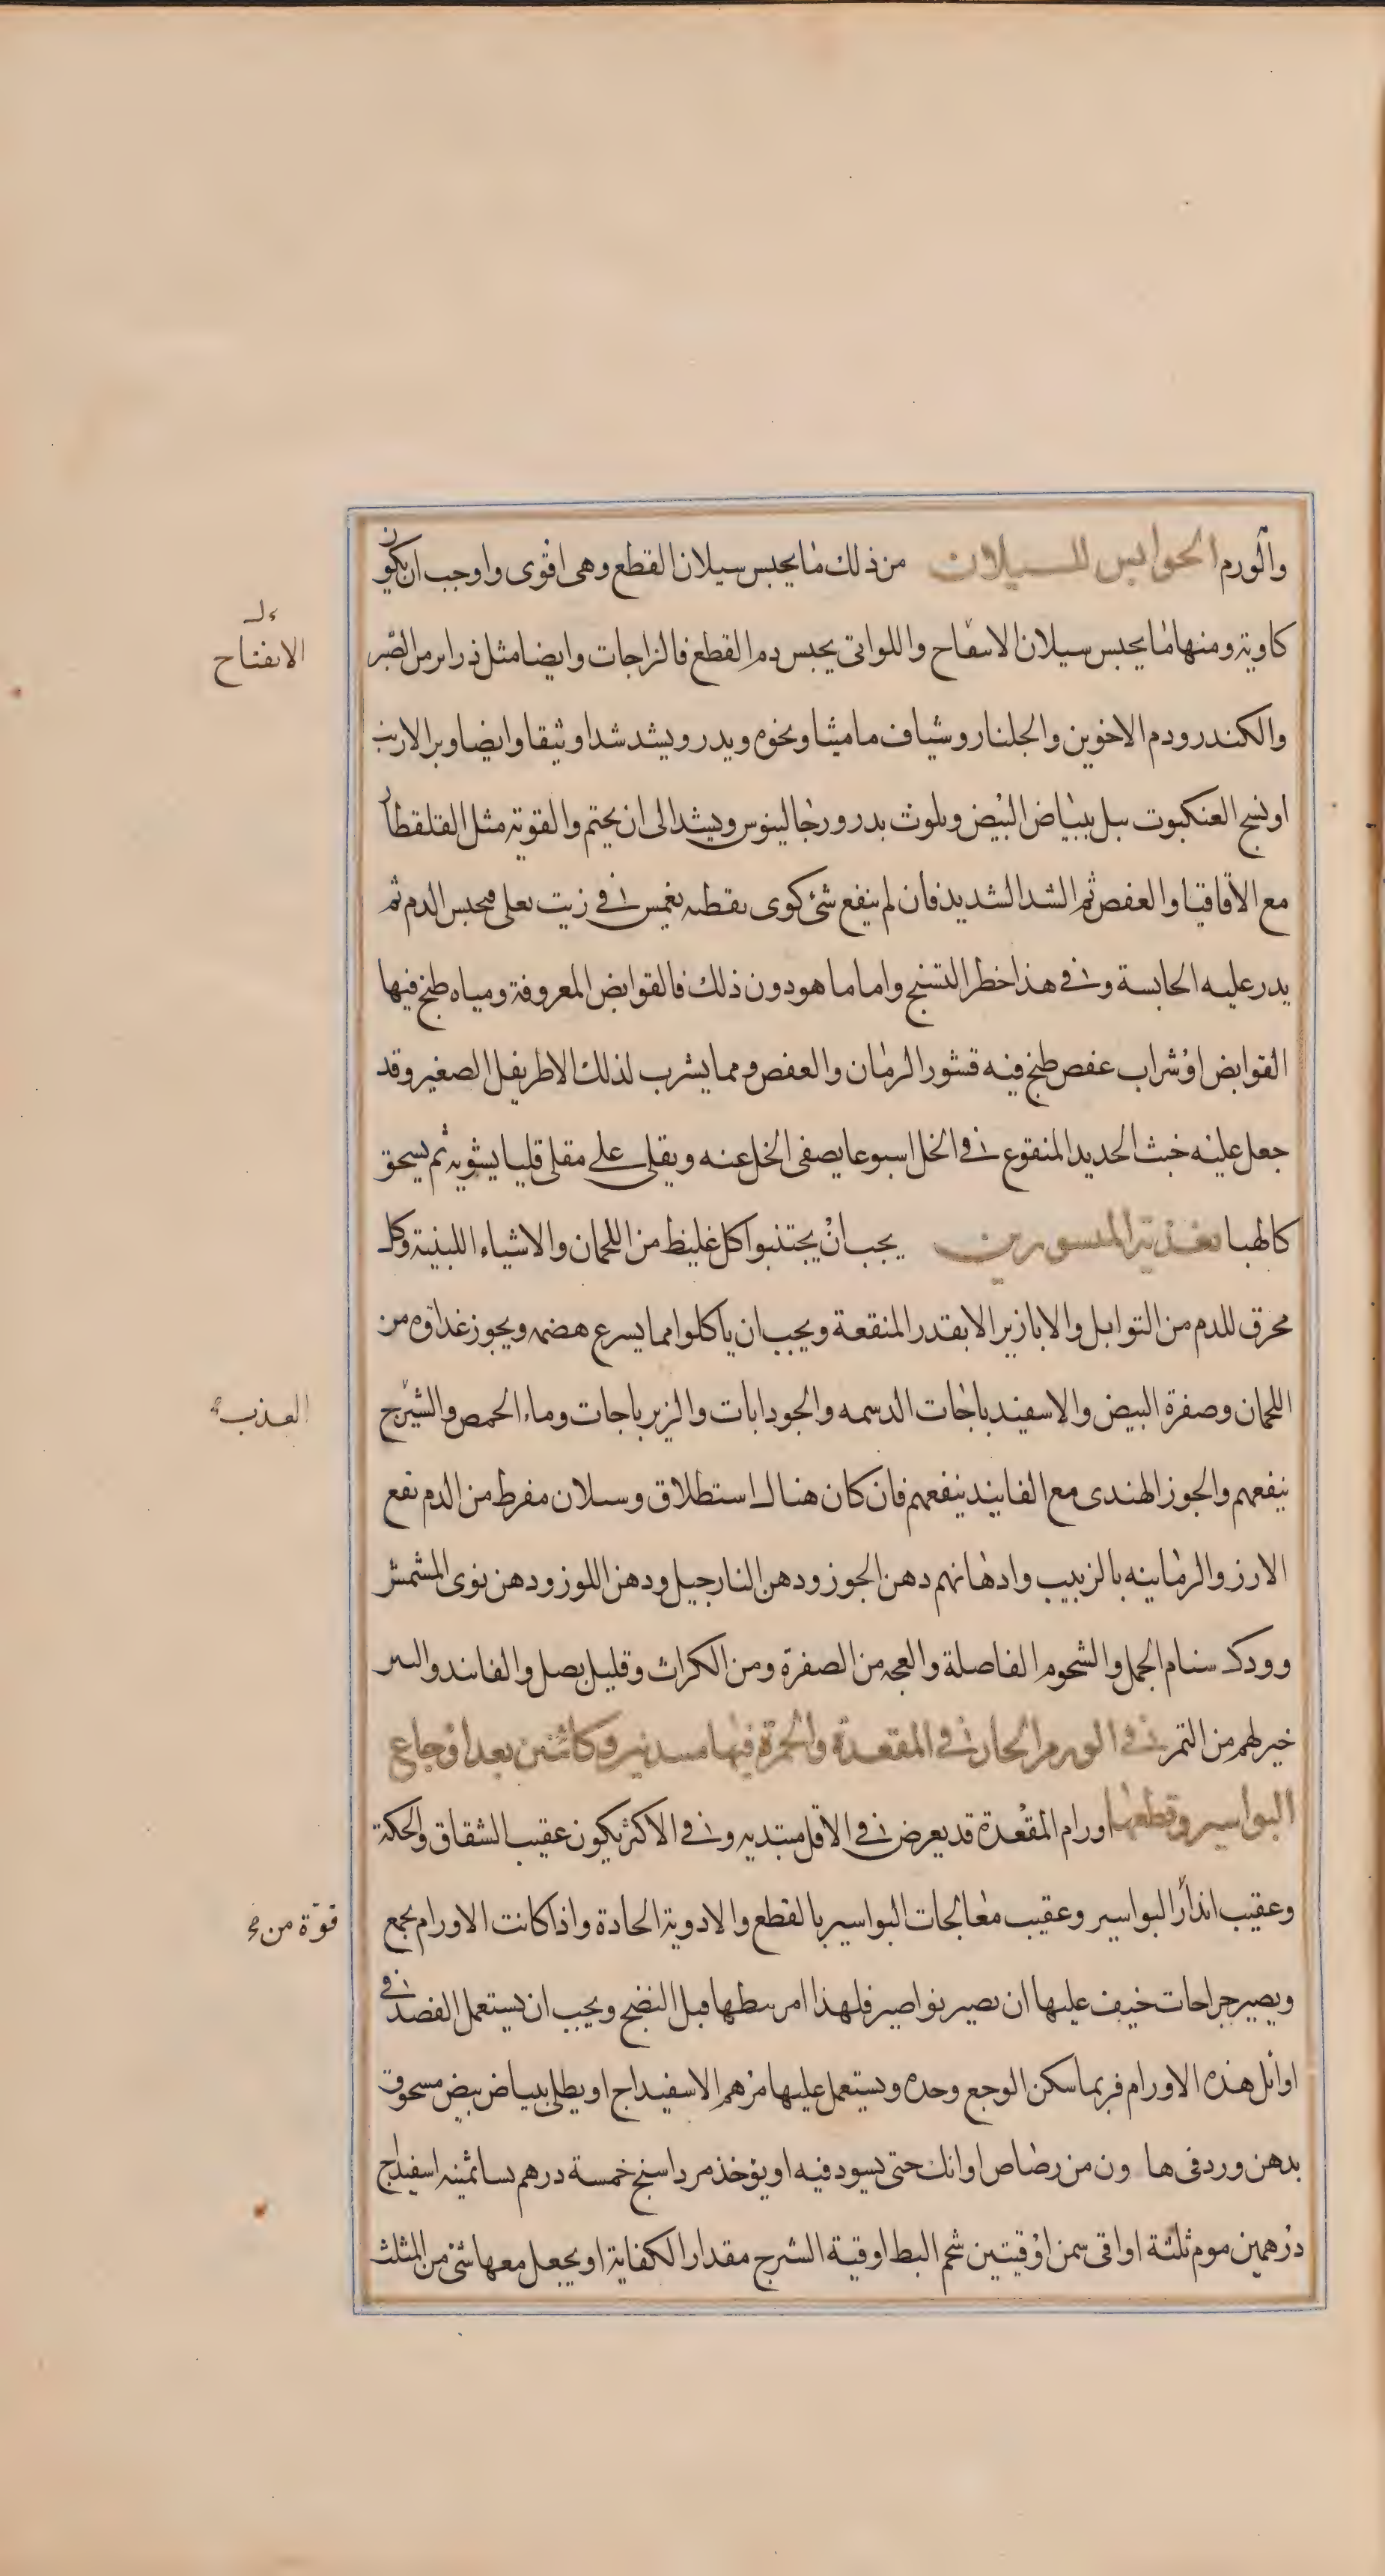 والورم الحوابس للسيلان من ذلك ما يحبس سيلان القطع وهى اقوى واوجب ان يكون
كاوية ومنها ما يحبس سيلان الاسفاح واللواتى يحبس دم القطع فالزاجات وايضا مثل ذراير من الصبر
الانفتاح
والكندر ودم الاخوين والجلنار وشياف ماميثا ونحوه ويدر ويشد شدا وثيقا وايضا وبر الارنب
او نسج العنكبوت يبل ببياض البيض ويلوث بدرور جالينوس ويشد الى ان يختم والقوية مثل القلقطار
مع الاقاقيا والعفص ثم الشد الشديد فان لم ينفع شئ كوى بقطنه يغمس فى زيت يغلى فيحبس الدم ثم
يدر عليه الحابسة وفى هذا خطر التشنج واما ما هو دون ذلك فالقوابض المعروفة ومياه طبخ فيها
القوابض او شراب عفص طبخ فيه قشور الرمان والعفص ومما يشرب لذلك الاطريفل الصغير وقد
جعل عليه خبث الحديد المنقوع فى الخل اسبوعا يصفى الخل عنه ويقلى على مقلى قليا يشويه ثم يسحق
كالهبا تغذية المبسورين يجب ان يجتنبوا كل غليظ من اللحمان والاشياء اللبنية وكل
محرق للدم من التوابل والابازير الا بقدر المنفعة ويجب ان ياكلوا مما يسرع هضمه ويجوز غذاوه من
اللحمان وصفرة البيض والاسفيدباجات الدسمه والجودابات والزيرباجات وماء الحمص والشيرج
العذب
ينفعهم والجوز الهندى مع الفانيد ينفعهم فان كان هناك استطلاق وسيلان مفرط من الدم نفع
الارز والرمانيه بالزبيب وادهانهم دهن الجوز ودهن النارجيل ودهن اللوز ودهن نوى المشمش
وودك سنام الجمل والشحوم الفاصلة والعجه من الصفرة ومن الكراث وقليل بصل والفانيد والتين
خير لهم من التمر فى الورم الحار فى المقعدة والحمرة فيها مبتدئين وكائنين بعد اوجاع
البواسير وقطعها اورام المقعدة قد يعرض فى الاقل مبتديه وفى الاكثر يكون عقيب الشقاق والحكة
وعقيب انذار البواسير وعقيب معالجات البواسير بالقطع والادوية الحادة واذا كانت الاورام يجمع
قوة من
ويصير جراحات خيف عليها ان يصير نواصير فلهذا امر ببطها قبل النضج ويجب ان يستعمل الفصد فى
اوائل هذه الاورام فربما سكن الوجع وحده ويستعمل عليها مرهم الاسفيداج او يطلى ببياض بيض مسحوق
بدهن ورد فى ها ون من رصاص او انك حتى يسود فيه او يوخذ مرداسنج خمسة درهم اسفيداج
درهمين موم ثلثة اواقى سمن اوقيتين شحم البط اوقية الشيرج مقدار الكفاية او يجعل معها شئ من المثلث